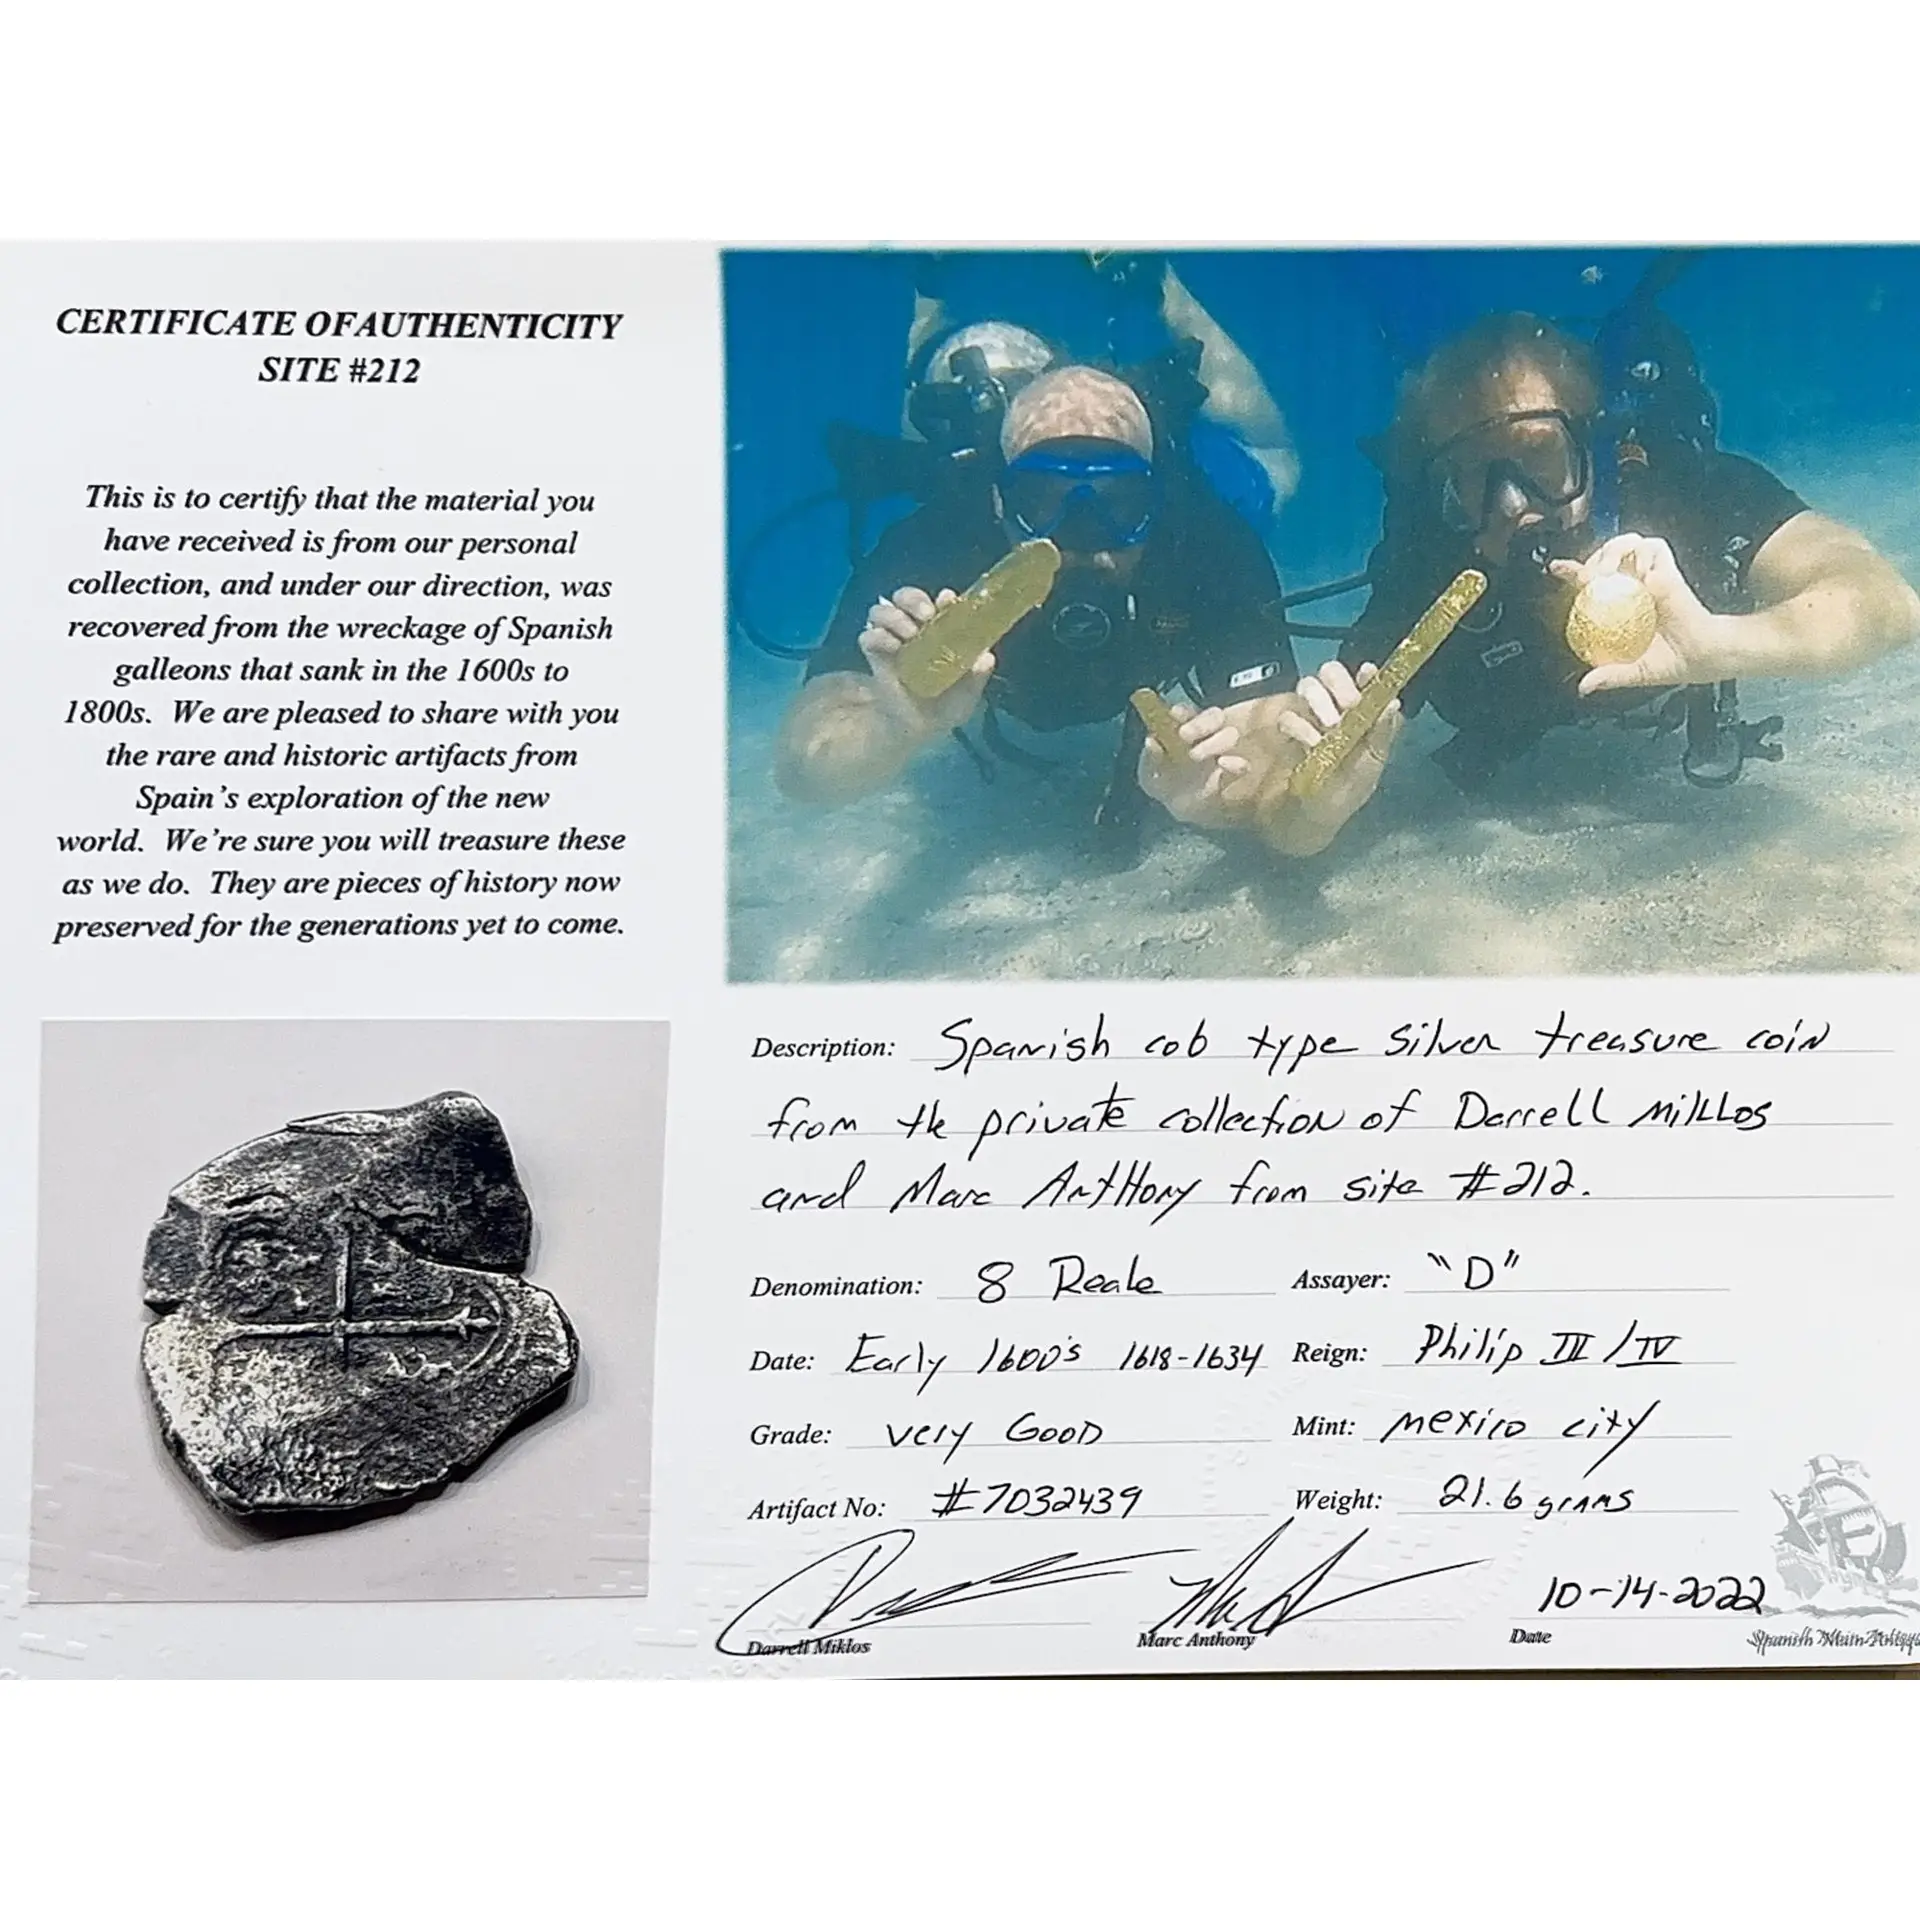 CERTIFICATE OF AUTHENTICITY
SITE #212
This is to certify that the material you
have received is from our personal
collection, and under our direction, was
recovered from the wreckage of Spanish
galleons that sank in the 1600s to
1800s. We are pleased to share with you
the rare and historic artifacts from
Spain's exploration of the new
world. We're sure you will treasure these
as we do. They are pieces of history now
preserved for the generations yet to come.
Description: Spanish cob type silver treasure coin
from the private collection of Darrell Miklos
and Marc Anthony from site #212.
Denomination: 8 Reale Assayer: "D"
Date: Early 1600's 1618-1634 Reign: Philip III/IV
Grade: Very Good Mint: Mexico City
Artifact No: #7032439 Weight: 21.6 grams
10-14-2022
Darrell Miklos Marc Anthony Date Spanish Main